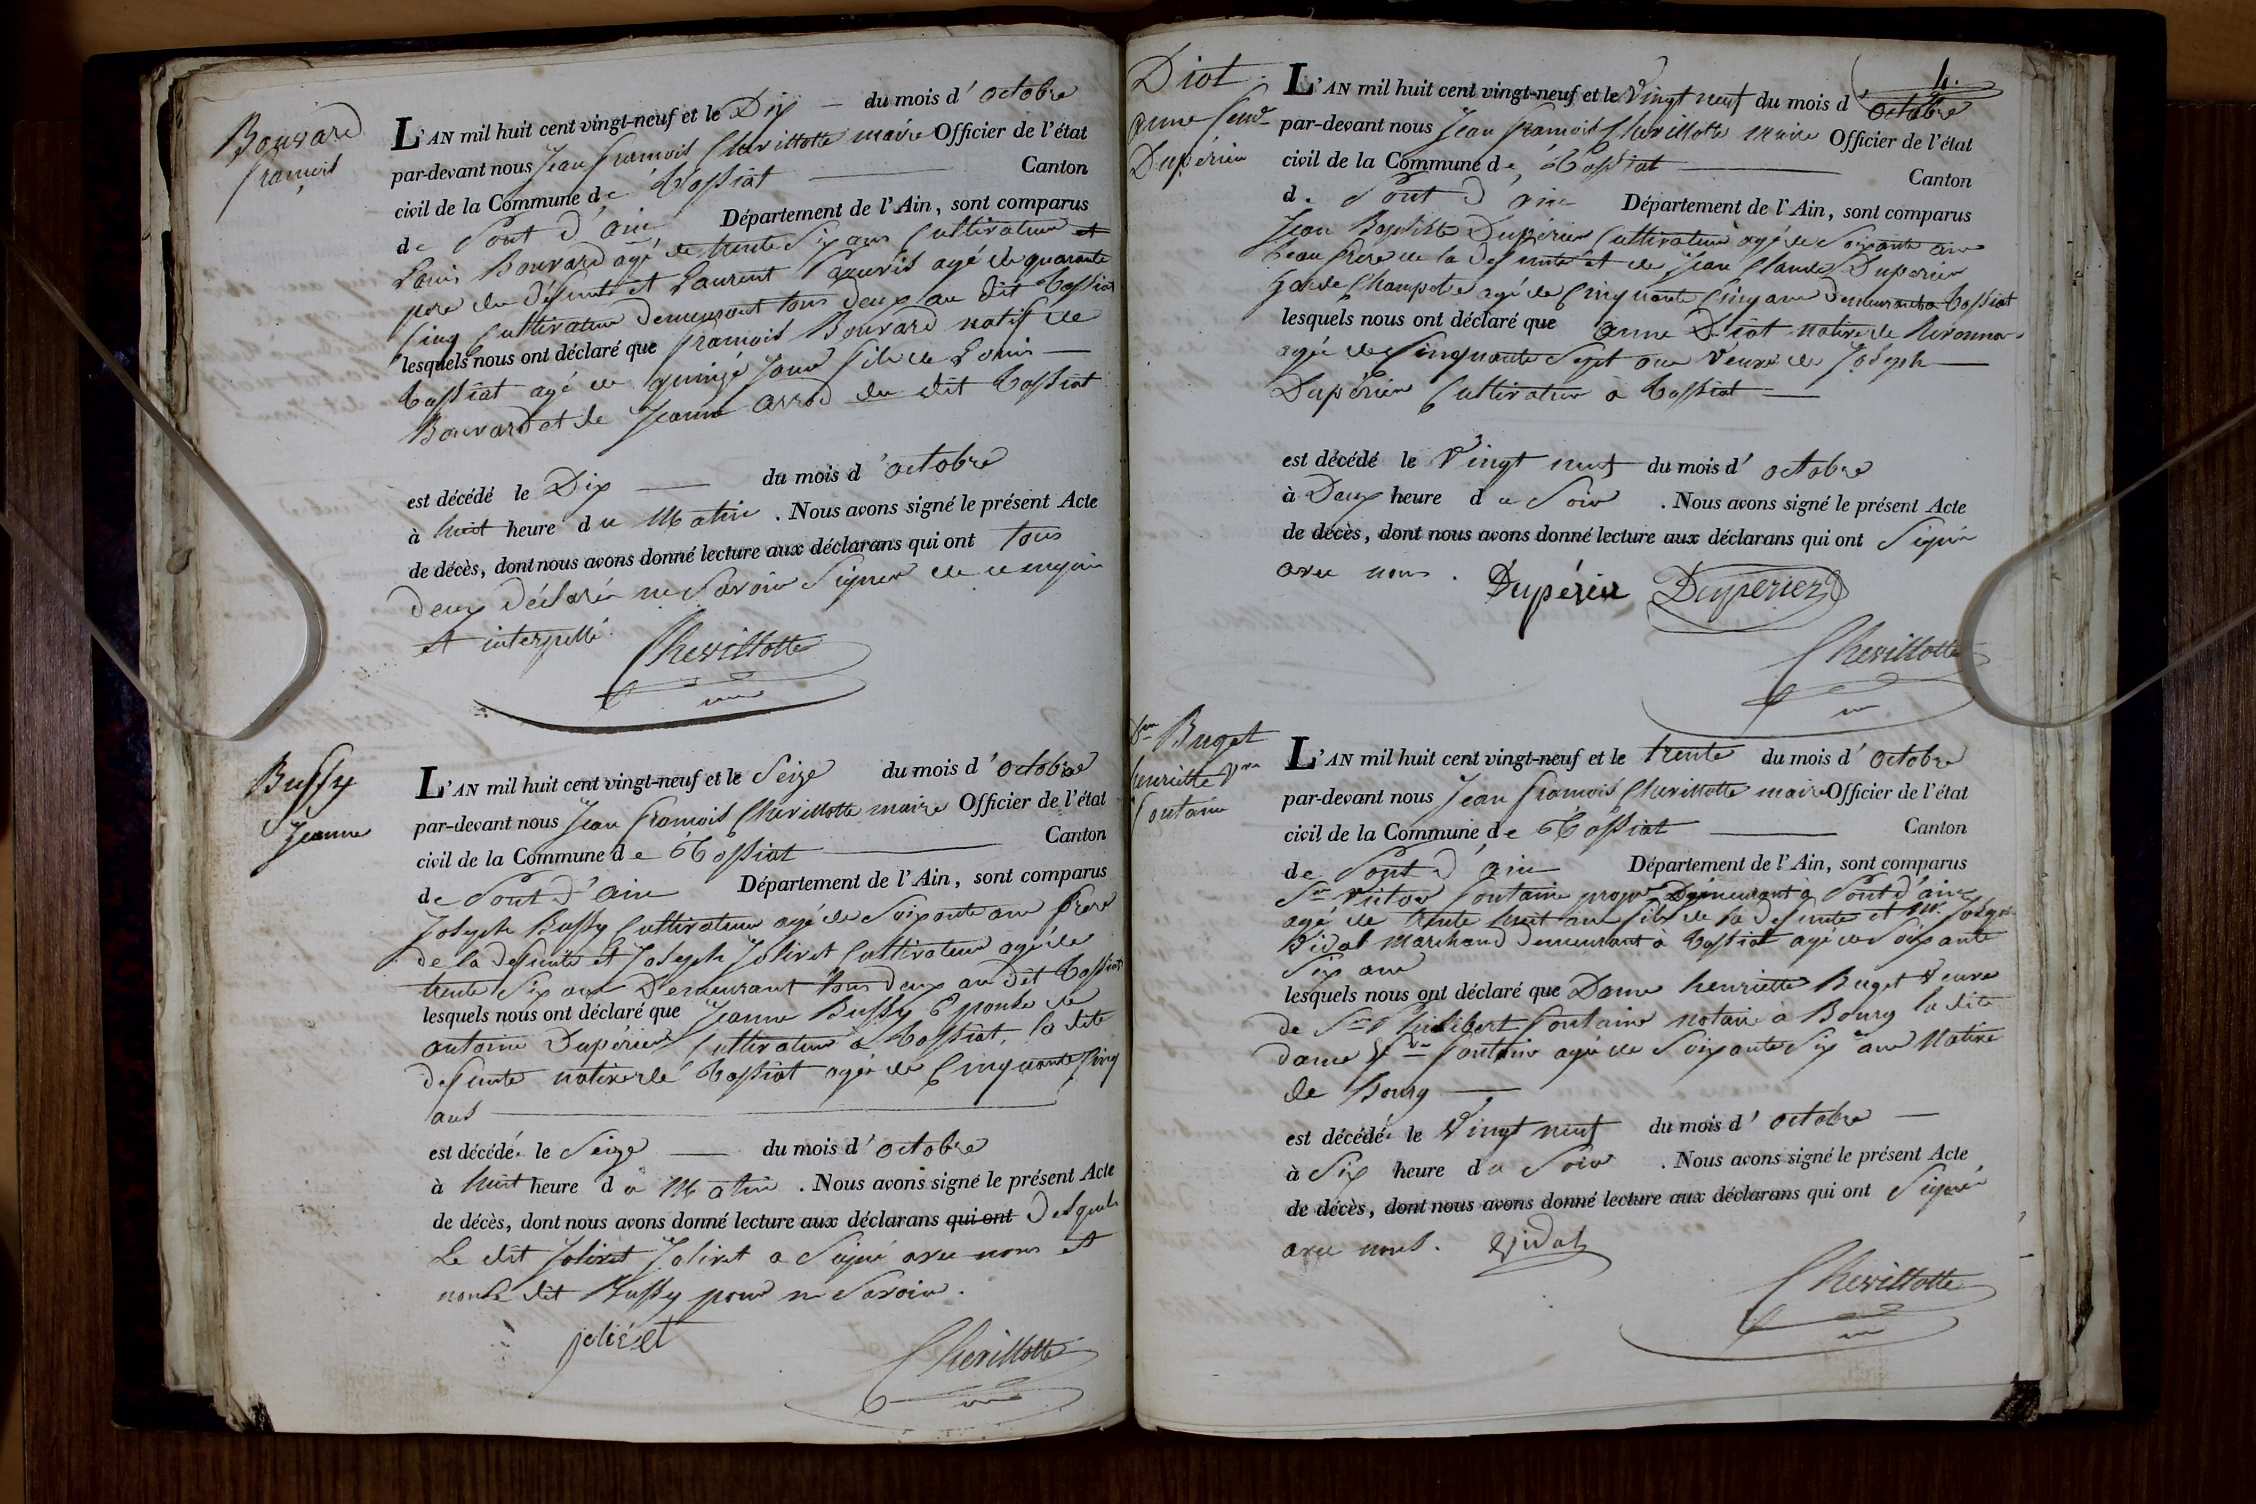 Bouvard
françois
L'AN mil huit cent vingt-neuf et le Dix — du mois d'octobre
par-devant nous Jean françois Chevillotte maire Officier de l'état
civil de la Commune de Tossiat — Canton
de Pont d'ain Département de l'Ain, sont comparus
Louis Bouvard agé de trente Six ans Cultivateur et
pere du défunt et Laurent agé de quarante
Cinq Cultivateur demeurant tous deux au dit Tossiat
lesquels nous ont déclaré que françois Bouvard natif de
Tossiat agé de quinze jours fils de Louis —
Bouvard et de Jeanne du dit Tossiat
est décédé le Dix — du mois d'octobre
à huit heure du Matin . Nous avons signé le présent Acte
de décès, dont nous avons donné lecture aux déclarans qui ont tous
deux déclaré ne Savoir Signer de ce enquis
et interpellé
Chevillotte
Bussy
Jeanne
L'AN mil huit cent vingt-neuf et le Seize du mois d'octobre
par-devant nous Jean françois Chevillotte maire Officier de l'état
civil de la Commune de Tossiat — Canton
de Pont d'ain Département de l'Ain, sont comparus
Joseph Bussy Cultivateur agé de Soixante ans frere
de la defunte et Joseph Jolivet Cultivateur agé de
trente Six ans Demeurant tous deux au dit Tossiat
lesquels nous ont déclaré que Jeanne Bussy Epouse de
antoine Dupérier Cultivateur à Tossiat, la dite
defunte native de Tossiat agée de Cinquante Cinq
ans —
est décédée le Seize — du mois d'octobre
à huit heure du Matin . Nous avons signé le présent Acte
de décès, dont nous avons donné lecture aux déclarans qui ont Desquels
Le dit Jolivet Jolivet a Signé avec nous et
non le dit Bussy pour ne Savoir.
jolivet
Chevillotte
4.
Diot
anne
Dupérier
L'AN mil huit cent vingt-neuf et le Vingt neuf du mois d'octobre
par-devant nous Jean françois Chevillotte maire Officier de l'état
civil de la Commune de Tossiat — Canton
de Pont d'ain Département de l'Ain, sont comparus
Jean Baptiste Dupérier Cultivateur agé de Soixante ans
beau frere de la defunte et de Jean Claude Duperier
garde Champetre agé de Cinquante Cinq ans Demeurant a Tossiat
lesquels nous ont déclaré que anne Diot native de
agée de Cinquante Sept ans Veuve de Joseph —
Dupérier Cultivateur a Tossiat —
est décédé le Vingt neuf du mois d'octobre
à Deux heure du Soir . Nous avons signé le présent Acte
de décès, dont nous avons donné lecture aux déclarans qui ont Signé
avec nous. Dupérier Duperier
Chevillotte
Buget
henriette Vve
fontaine
L'AN mil huit cent vingt-neuf et le trente du mois d'octobre
par-devant nous Jean françois Chevillotte maire Officier de l'état
civil de la Commune de Tossiat — Canton
de Pont d'ain Département de l'Ain, sont comparus
Sr Victor fontaine propre Demeurant à Pont d'ain
agé de trente huit ans fils de la defunte et Mr. Joseph
Vidal Marchand demeurant à Tossiat agé de Soixante
Six ans
lesquels nous ont déclaré que Dame henriette Buget Veuve
de Sr Philibert fontaine notaire à Bourg la dite
dame Vve fontaine agée de Soixante Six ans Native
de Bourg —
est décédée le Vingt neuf du mois d'octobre —
à Six heure du Soir . Nous avons signé le présent Acte
de décès, dont nous avons donné lecture aux déclarans qui ont Signé
avec nous. Vidal
Chevillotte